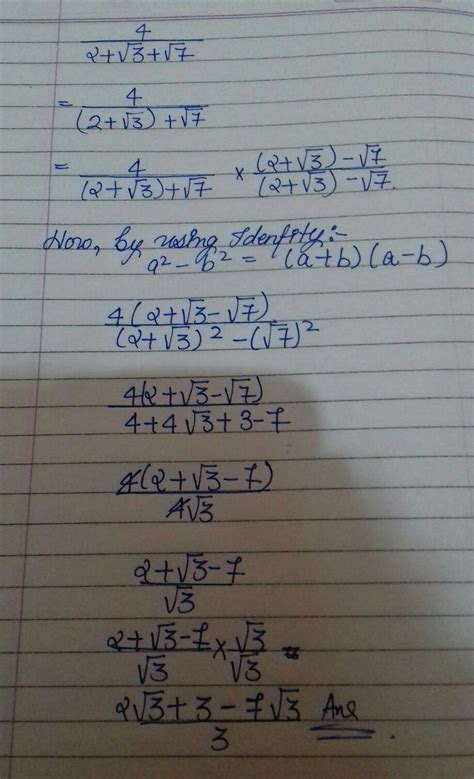 4
2+√3+√7
= 4
(2+√3)+√7
= 4 × (2+√3)-√7
(2+√3)+√7 (2+√3)-√7.
Now, by using Identity:-
a² - b² = (a+b)(a-b)
4(2+√3-√7)
(2+√3)²-(√7)²
4(2+√3-√7)
4+4√3+3-7
4(2+√3-7)
4√3
2+√3-7
√3
2+√3-7 × √3 =
√3 √3
2√3+3-7√3 Ans
3